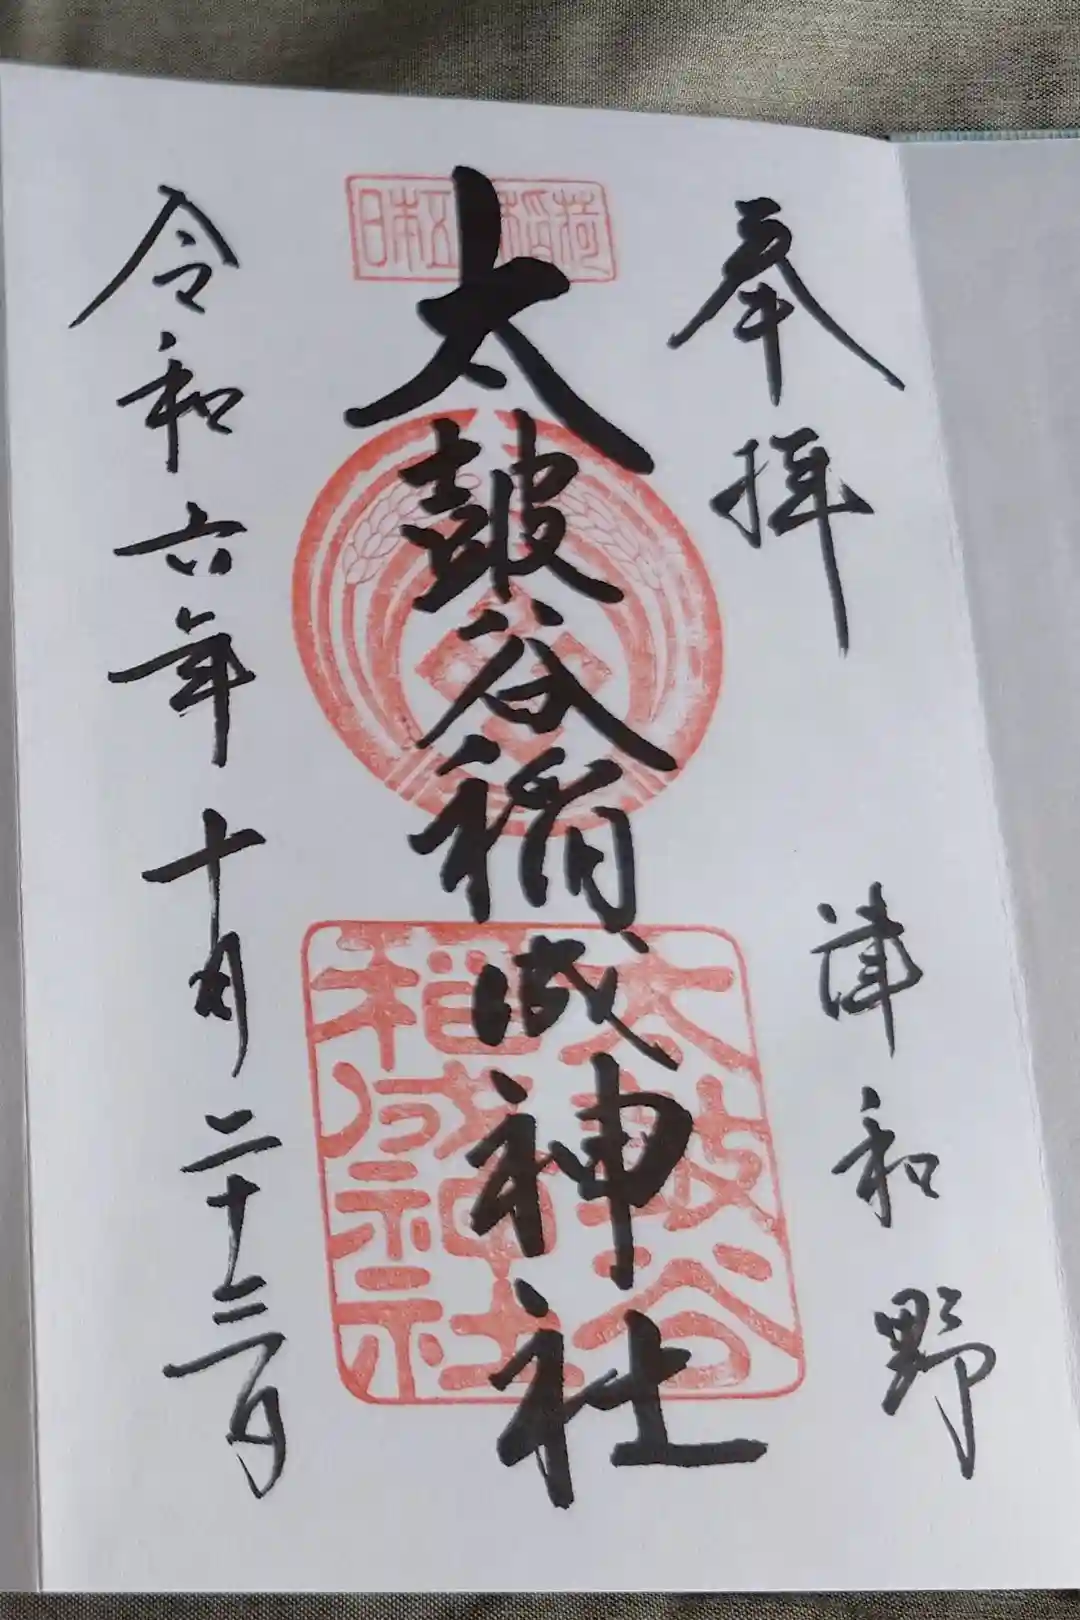 奉拝
津和野
日本五 稲荷
太皷谷稲成神社
太皷谷
稲成神社
令和六年十月二十三日